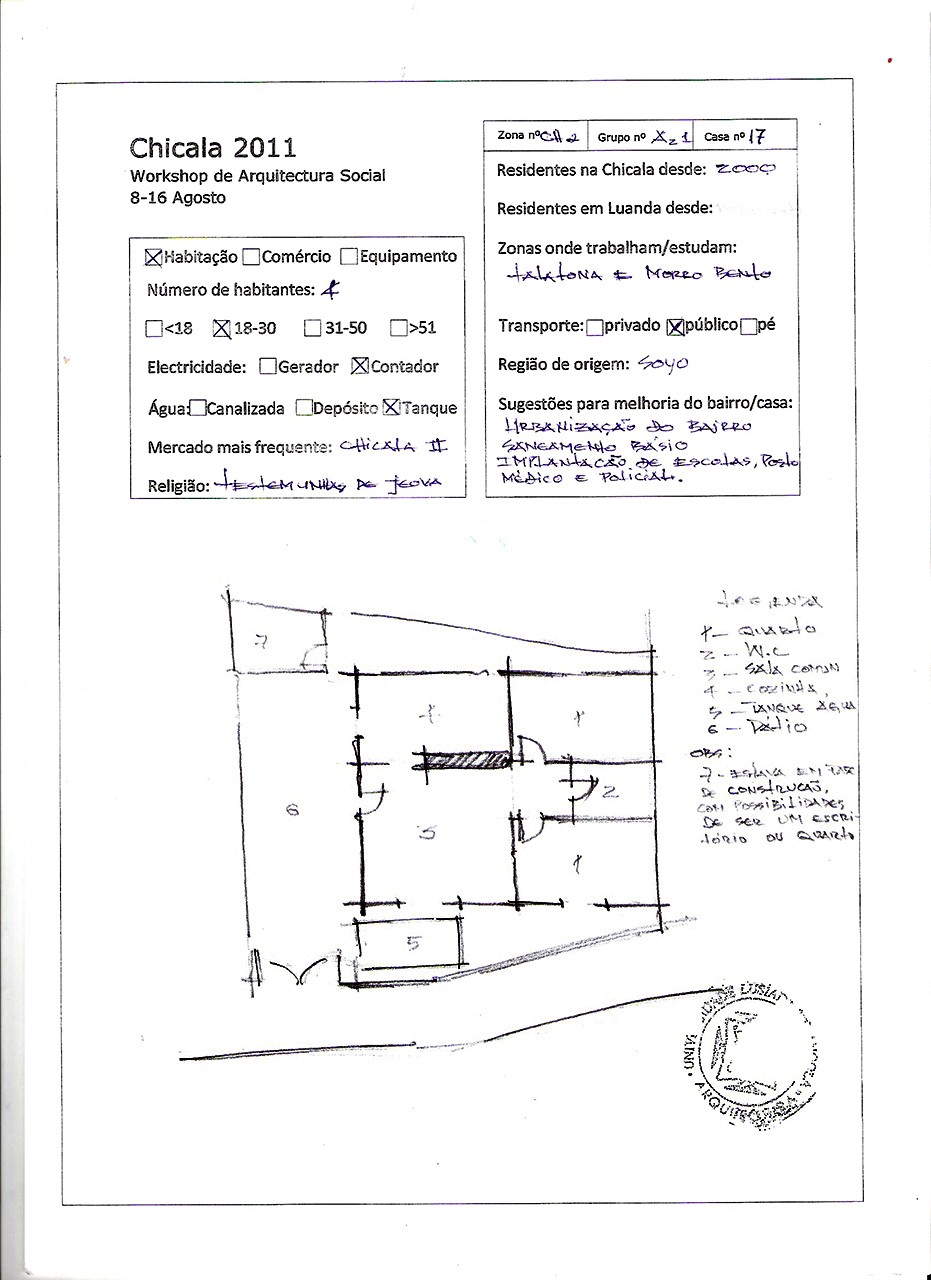 Chicala 2011
Workshop de Arquitectura Social
8-16 Agosto
☒Habitação ☐Comércio ☐Equipamento
Número de habitantes: 4
☐<18 ☒18-30 ☐31-50 ☐>51
Electricidade: ☐Gerador ☒Contador
Água:☐Canalizada ☐Depósito ☒Tanque
Mercado mais frequente: CHICALA II
Religião: TESTEMUNHAS DE JEOVA
Zona nº CH 2 Grupo nº Casa nº 17
Residentes na Chicala desde: 2000
Residentes em Luanda desde:
Zonas onde trabalham/estudam:
TALATONA E MORRO BENTO
Transporte:☐privado ☒público☐pé
Região de origem: SOYO
Sugestões para melhoria do bairro/casa:
URBANIZAÇÃO DO BAIRRO
SANEAMENTO BÁSIO
IMPLANTACÃO DE ESCOLAS, Posto
MÉDICO E POLICIAL.
7
4
1
2
6
3
1
5
LEGENDA
1- QUARTO
2 - W.C
3 - SALA COMUN
4 - COZINHA,
5 - TANQUE ÁGUA
6 - PÁTIO
OBS:
7- ESTAVA EM FASE
DE CONSTRUCÃO,
COM POSSIBILIDADES
DE SER UM ESCRI-
TÓRIO OU QUARTO
ARQUITECTURA